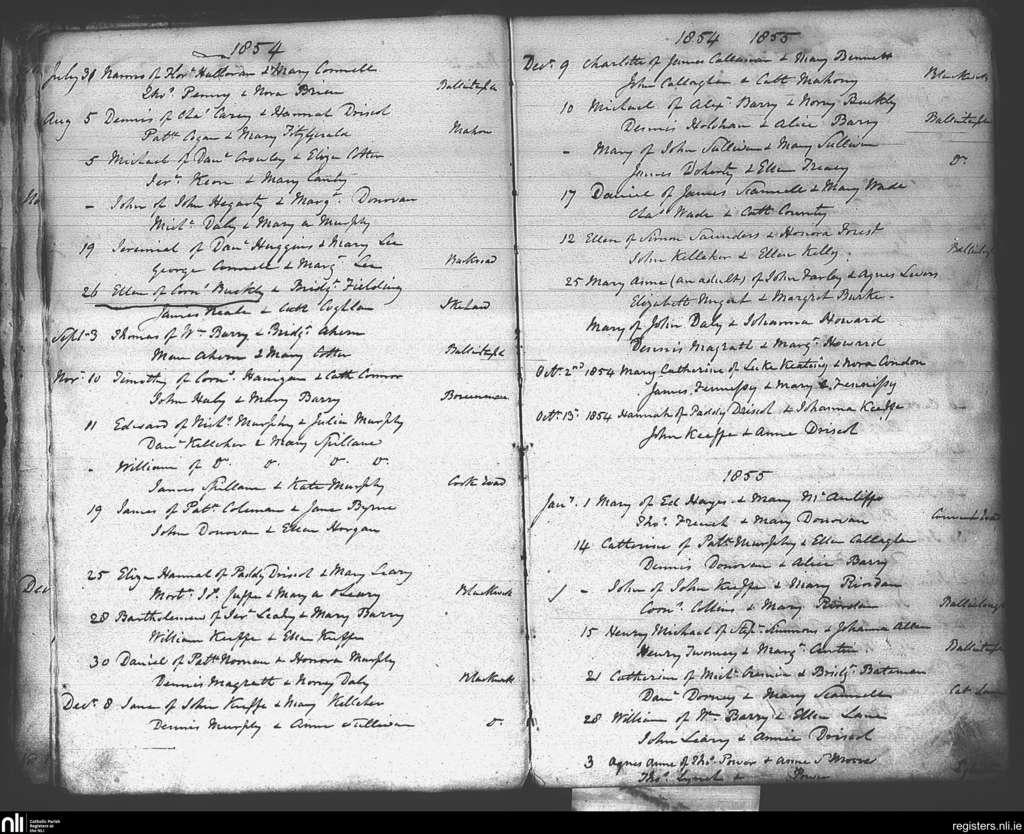 1854
July 30 Narcis of Flor. Halloran & Mary Connell
Thos. Penny & Nora Brien Ballintemple
Aug 5 Dennis of Chas. Carey & Hannah Driscol
Patk. Cogan & Mary Fitzgerald Mahon
5 Michael of Danl. Crowley & Eliza Cotter
Jerh. Keon & Mary Canty
- John of John Hegarty & Margt. Donovan
Michl. Daly & Mary a Murphy
19 Jeremiah of Danl. Huggins & Mary Lee
George Connell & Margt. Lee
26 Ellen of Corns. Buckly & Bridgt. Fielding
James Neale & Cath Coghlan Skehard
Sept. 3 Thomas of Wm. Barry & Bridgt. Ahern
Ahern & Mary Cotter Ballintemple
Novr. 10 Timothy of Corns. Hanigan & Cath Connor
John Haly & Mary Barry
11 Edward of Michl. Murphy & Julia Murphy
Danl. Kelleher & Mary Spillane
- William of Do. Do. Do. Do.
James Spillane & Kate Murphy
19 James of Patk. Coleman & Jane Byrne
John Donovan & Ellen Horgan
Dec
25 Eliza Hannah of Paddy Driscol & Mary Leary
Mary a O Leary Blackrock
28 Bartholomew of Jerh. Leahy & Mary Barry
William Keeffe & Ellen Keeffe
30 Daniel of Patk. Noonan & Honora Murphy
Dennis Magrath & Norry Daly Blackrock
Decr. 8 Jane of John Keeffe & Mary Kelleher
Dennis Murphy & Anne Sullivan Do.
1854 1855
Decr. 9 Charlotte of James Callaghan & Mary Bennett
John Callaghan & Cath Mahony Blackrock
10 Michael of Alexr. Barry & Norry Buckly
Dennis Holohan & Alice Barry Ballintemple
- Mary of John Sullivan & Mary Sullivan
James Doherty & Ellen Treacy Do.
17 Daniel of James Scannell & Mary Wade
Chas. Wade & Cath County
12 Ellen of Simon Saunders & Honora Forest
John Kellaher & Ellen Kelly.
25 Mary Anne (an adult) of John Farley & Agnes Levers
Elizabeth Nugent & Margret Burke.
Mary of John Daly & Johanna Howard
Dennis Magrath & Margt. Howard
Octr. 2nd 1854 Mary Catherine of Luke Keating & Nora Condon
James Fennessy & Mary Fennessy
Octr. 15. 1854 Hannah of Paddy Driscol & Johanna Keeffe
John Keeffe & Anne Driscol
1855
Jany. 1 Mary of Ed Hayes & Mary McAuliffe
Thos. French & Mary Donovan
14 Catherine of Patk. Murphy & Ellen Callaghan
Dennis Donovan & Alice Barry
- John of John Keeffe & Mary Riordan
Corns. Collins & Mary Riordan
15 Henry Michael of Stepn. Simmons & Johanna Allen
Henry Twomey & Margt. Ballintemple
21 Catherine of Michl. Cremin & Bridgt. Bateman
Danl. Dorney & Mary Scannell
28 William of Wm. Barry & Ellen Lane
John Leary & Annie Driscol
3 Agnes Anne of Thos. Power & Anne S Moore
Thos. Lynch & Power
nli Catholic Parish
Registers at
the NLI
registers.nli.ie